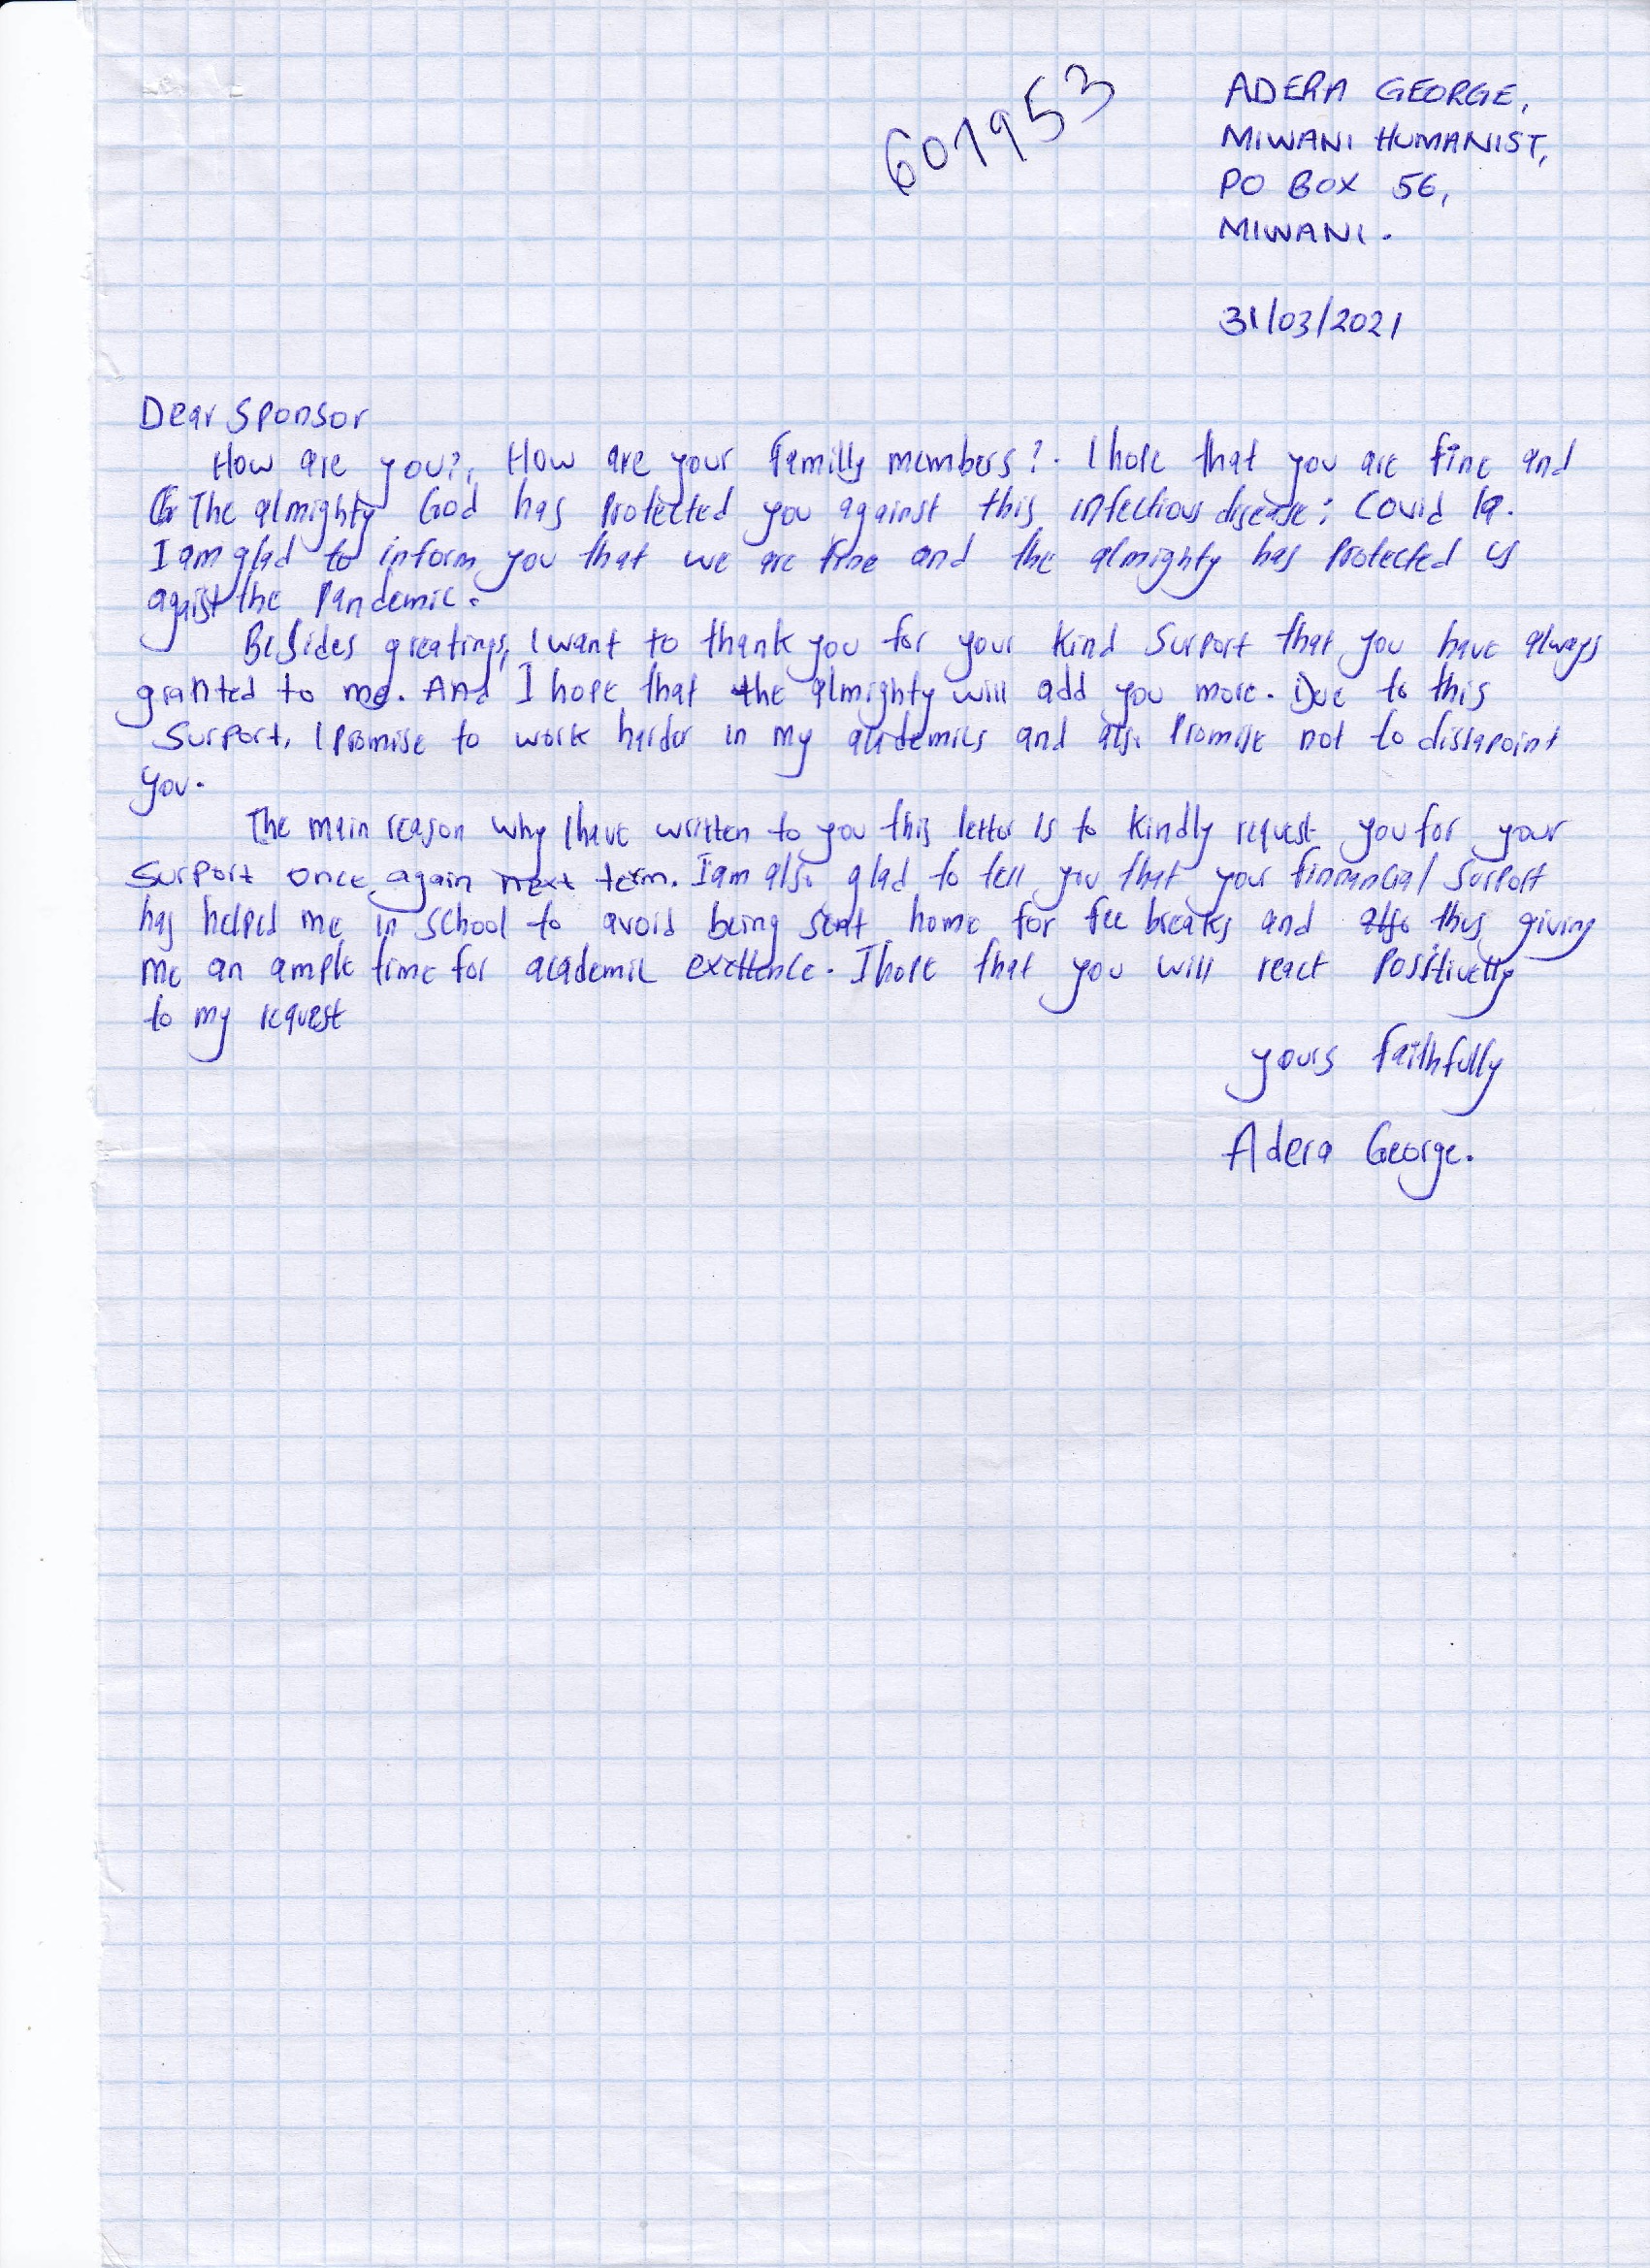 601953
ADERA GEORGE,
MIWANI HUMANIST,
PO BOX 56,
MIWANI.
31/03/2021
Dear Sponsor
How are you?, How are your familly members?. I hope that you are fine and
The almighty God has protected you against this infectious disease; Covid 19.
I am glad to inform you that we are fine and the almighty has protected us
agaist the pandemic.
Besides greatings, I want to thank you for your kind surport that you have always
granted to me. And I hope that the almighty will add you more. Due to this
surport, I promise to work harder in my academics and also promise not to dissapoint
you.
The main reason why I have written to you this letter is to kindly request you for your
surport once again next term. I am also glad to tell you that your finnancial surport
has helped me in school to avoid being sent home for fee breaks and thus giving
me an ample time for academic excellence. I hope that you will react positivelly
to my request
yours faithfully
Adera George.